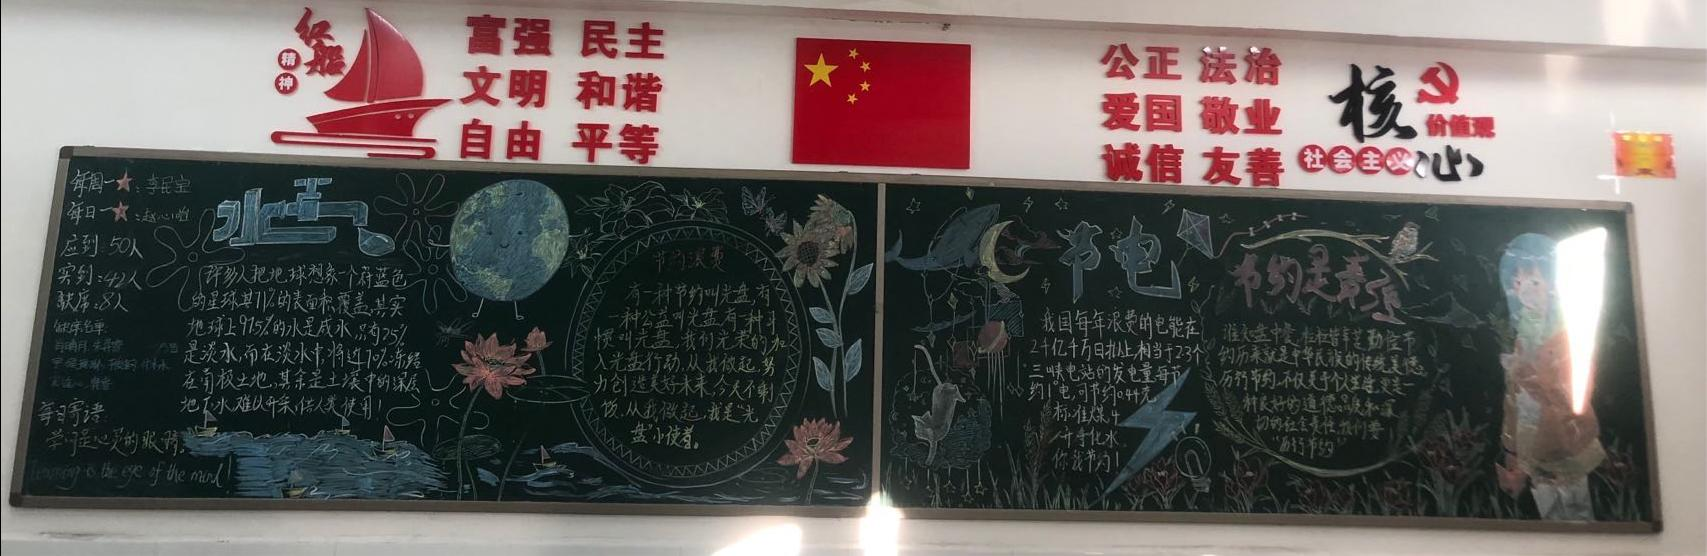 红船
精神
富强 民主
文明 和谐
自由 平等
公正 法治
爱国 敬业
诚信 友善
核心
价值观
社会主义
每周一★:李民宝
每日一★:赵心
应到:50人
实到:42人
缺席:8人
缺席名单:
每日寄语:
学问是心灵的眼睛。
Learning is the eye of the mind!
许多人把地球想象一个蔚蓝色
的星球,其71%的表面积覆盖,其实
地球上97.5%的水是咸水,只有2.5%
是淡水,而在淡水中,将近70%冻结
在南极土地,其余是土壤中的深层
地下水,难以开采,供人类使用!
节约浪费
有一种节约叫光盘,有
一种公益叫光盘,有一种习
惯叫光盘,我们光荣的加
入光盘行动,从我做起,努
力创造美好未来,今天不剩
饭,从我做起,我是“光
盘”小使者。
节电
我国每年浪费的电能在
2千亿千万日以上,相当于2.3个
三峡电站的发电量,每节
约1°电,可节约0.44元,
标准煤,4
升净化水。
你我节约!
节约是美德
谁知盘中餐,粒粒皆辛苦,勤俭节
约历来就是中华民族的传统美德,
厉行节约,不仅是个人
种良好的道德品质和深
切的社会责任,我们要
“厉行节约”